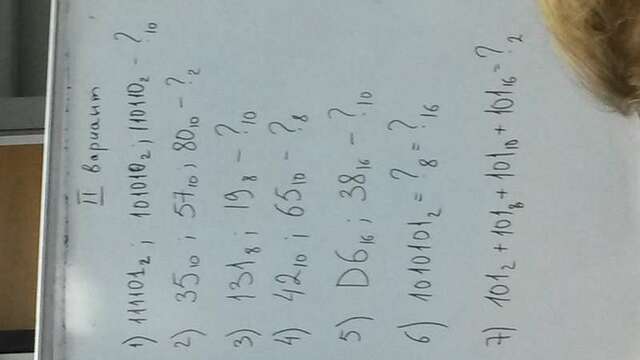 II вариант
1) 111101₂; 101010₂; 110110₂ – ?₁₀
2) 35₁₀; 57₁₀; 80₁₀ – ?₂
3) 131₈; 19₈ – ?₁₀
4) 42₁₀; 65₁₀ – ?₈
5) D6₁₆; 38₁₆ – ?₁₀
6) 1010101₂ = ?₈ = ?₁₆
7) 101₂ + 101₈ + 101₁₀ + 101₁₆ = ?₂